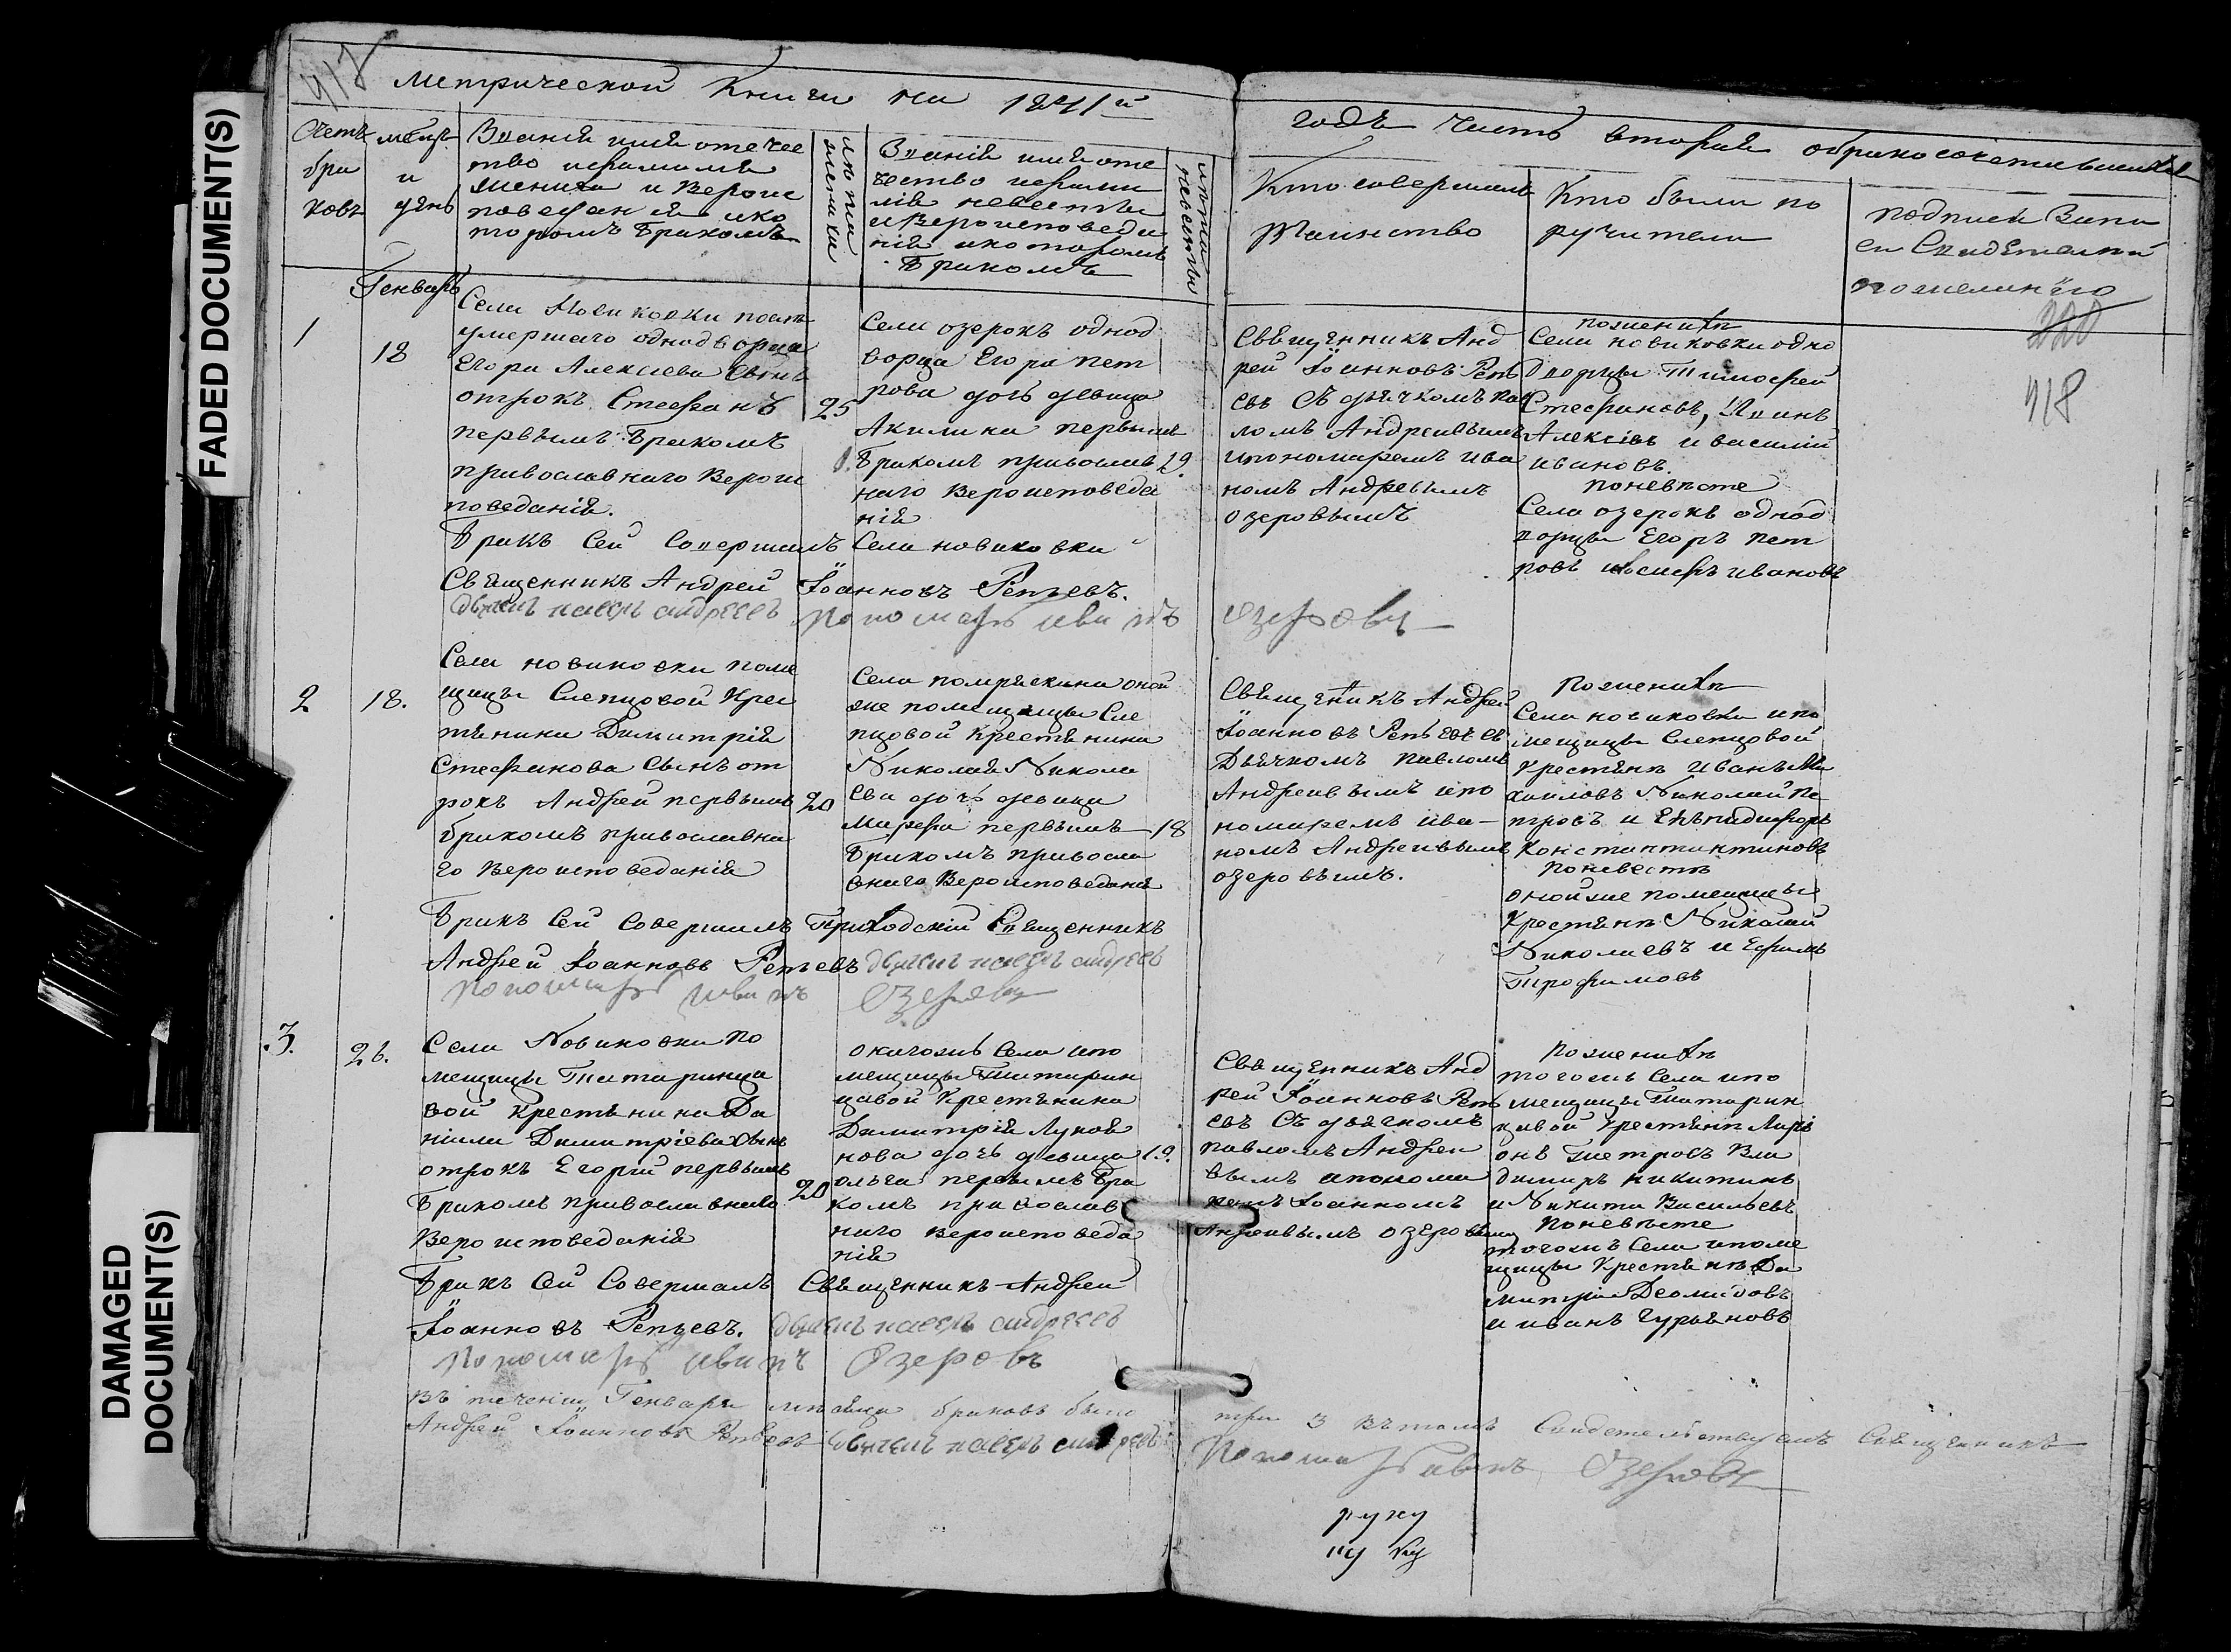 FADED DOCUMENT(S)
DAMAGED
DOCUMENT(S)
418
Метрической Книги на 1841й
годъ часть вторая обракосочетавшихся
Счетъ
бра
ковъ
месяцъ
и
день
Званiя имя отечес
тво ифамилiя
жениха и Вероис
поведанiя ико
торомъ бракомъ
лѣта
жениха
Званiя имя оте
чество ифами
лiя невесты
иВероисповеда
нiя икоторомъ
бракомъ
лѣта
невесты
Кто совершалъ
таинство
Кто были по
ручители
подписи Запи
си Свидетелей
пожеланiю
Генварь
1
18
Села Новиковки послѣ
умершаго однодворца
Егора Алексiева Сынъ
отрокъ Стефанъ
первымъ бракомъ
православнаго Вероис
поведанiя.
25
Села озерокъ однод
ворца Егора пет
рова дочь девица
Акилина первымъ
бракомъ православ
наго вероисповеда
нiя
19.
Священникъ Анд
рей Iоанновъ Репь
евъ Съ дьячкомъ пав
ломъ Андреевымъ
ипономаремъ Ива
номъ Андреевымъ
озеровымъ
пожениху
Села новиковки одно
дворцы Тимофей
Стефановъ, Иванъ
Алексiевъ и василiй
ивановъ.
поневѣсте
Села озерокъ однод
ворцы Егоръ пет
ровъ иосифъ ивановъ
220
418
Бракъ Сей Совершалъ Села новиковки
Священникъ Андрей Iоанновъ Репьевъ.
дьячекъ павелъ андреевъ пономарь иванъ озеровъ
2
18.
Села новиковки поме
щицы Слепцовой Крес
тьянина Димитрiя
Стефанова Сынъ от
рокъ Андрей первымъ
бракомъ православна
го Вероисповеданiя
20
Села помряскина оной
же помещицы Сле
пцовой крестьянина
Николая Никола
ева дочь девица
Марфа первымъ
бракомъ правосла
внаго Вероисповеданiя
18
Священникъ Андрей
Iоанновъ Репьевъ съ
Дьячкомъ павломъ
Андреевымъ ипо
номаремъ ива-
номъ Андреевымъ
озеровымъ.
пожениху
Села новиковки ипо
мещицы Слепцовой
крестьяне Иванъ Ми
хаиловъ Николай Пе
тровъ и Елпидифоръ
Константиновъ
поневесте
оной же помещицы
крестьяне Николай
Николаевъ и Ефимъ
Трофимовъ
Бракъ Сей Совершалъ Приходскiй Священникъ
Андрей Iоанновъ Репьевъ дьячекъ павелъ андреевъ
пономарь иванъ озеровъ
3.
26.
Села Новиковки по
мещицы Татаринцо
вой крестьянина Да
нiила Димитрiева Сынъ
отрокъ Егорiй первымъ
бракомъ православнаго
Вероисповеданiя
20
Села ипо
мещицы Татарин
цовой крестьянина
Димитрiя
дочь девица
ольга первымъ бра
комъ православ
наго вероисповеда
нiя
19.
Священникъ Анд
рей Iоанновъ Репь
евъ Съ дьячкомъ
павломъ Андрее
вымъ ипонома
ремъ Iоанномъ
Андреевымъ озеровымъ
пожениху
тогожъ Села ипо
мещицы Татарин
цовой крестьяне
Петровъ Вла
димиръ никитинъ
и Никита Васильевъ
поневѣсте
тогожъ Села ипоме
щицы крестьяне Ди
митрiй Деомидовъ
и иванъ Гурьяновъ
Бракъ Сей Совершалъ Священникъ Андрей
Iоанновъ Репьевъ. дьячекъ павелъ андреевъ
пономарь иванъ Озеровъ
Въ теченiи Генваря месяца браковъ было три 3 въ томъ Свидетельствуемъ Священникъ
Андрей Iоанновъ Репьевъ дьячекъ павелъ андреевъ пономарь иванъ Озеровъ
руку